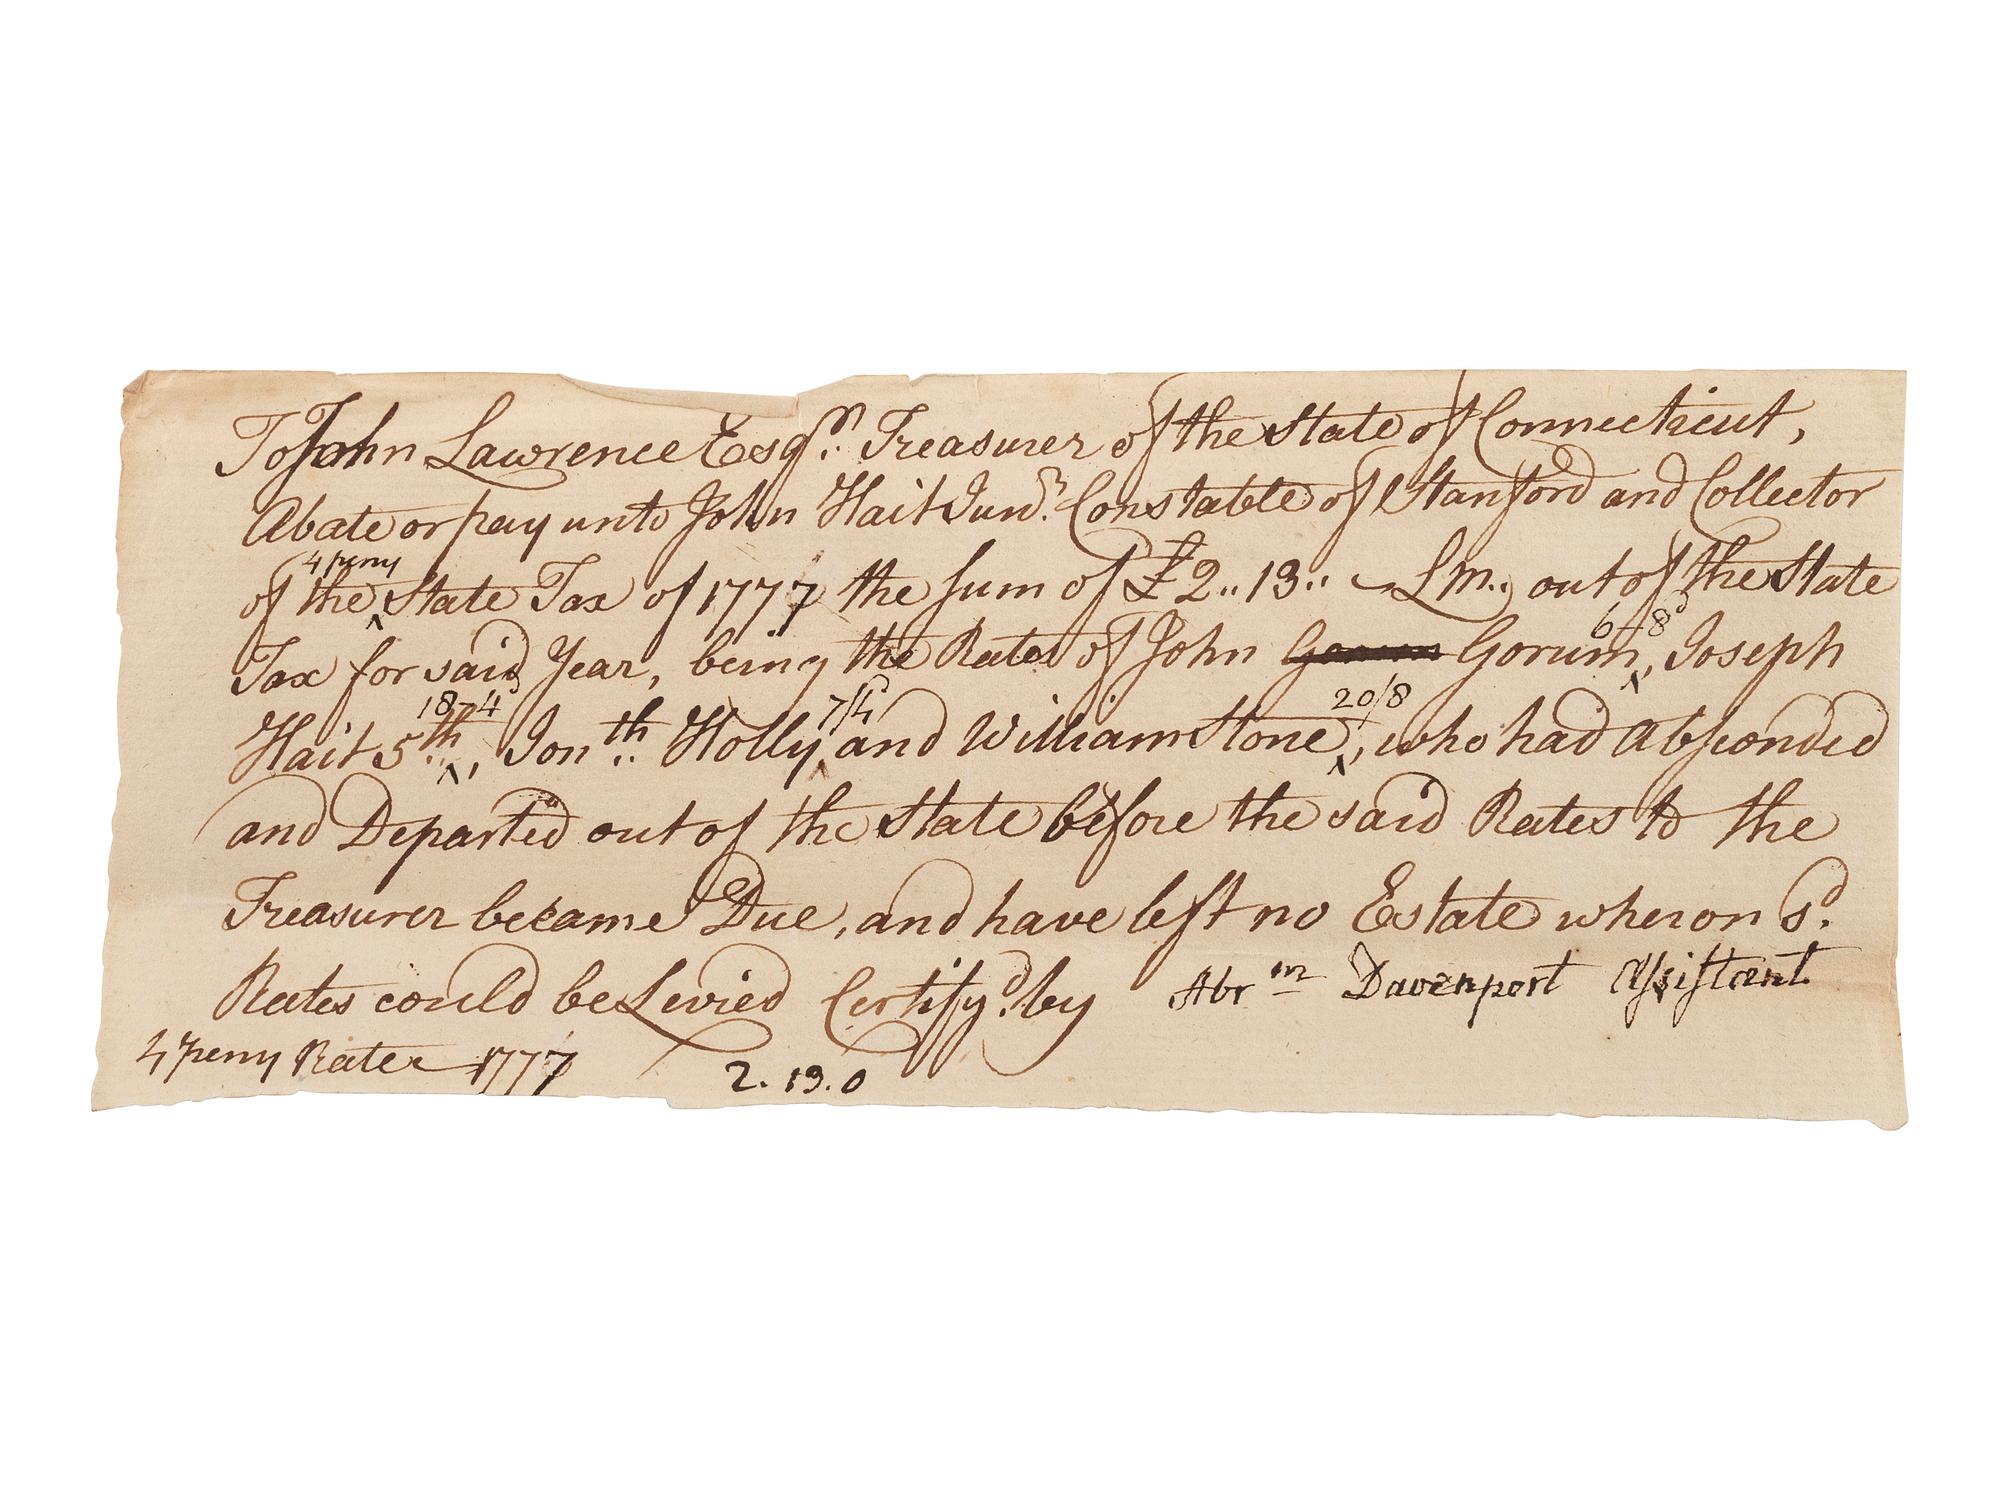 To John Lawrence Esqr. Treasurer of the State of Connecticut,
Abate or pay unto John Hait Junr. Constable of Stanford and Collector
4 peny
of the ^ State Tax of 1777 the Sum of £2..13.. LM.. out of the State
6-8d
Tax for said Year, being the Rates of John Gorum ^, Joseph
18-4d 7/4d 20/8
Hait 5th.. ^, Jonth.. Holly ^ and William Stone ^, who had Absconded
and Departed out of the State before the said Rates to the
Treasurer became Due, and have left no Estate wheron sd.
Rates could be Levied Certifyd. by Abrm Davenport Assistant
4 peny Rate 1777 2.13.0